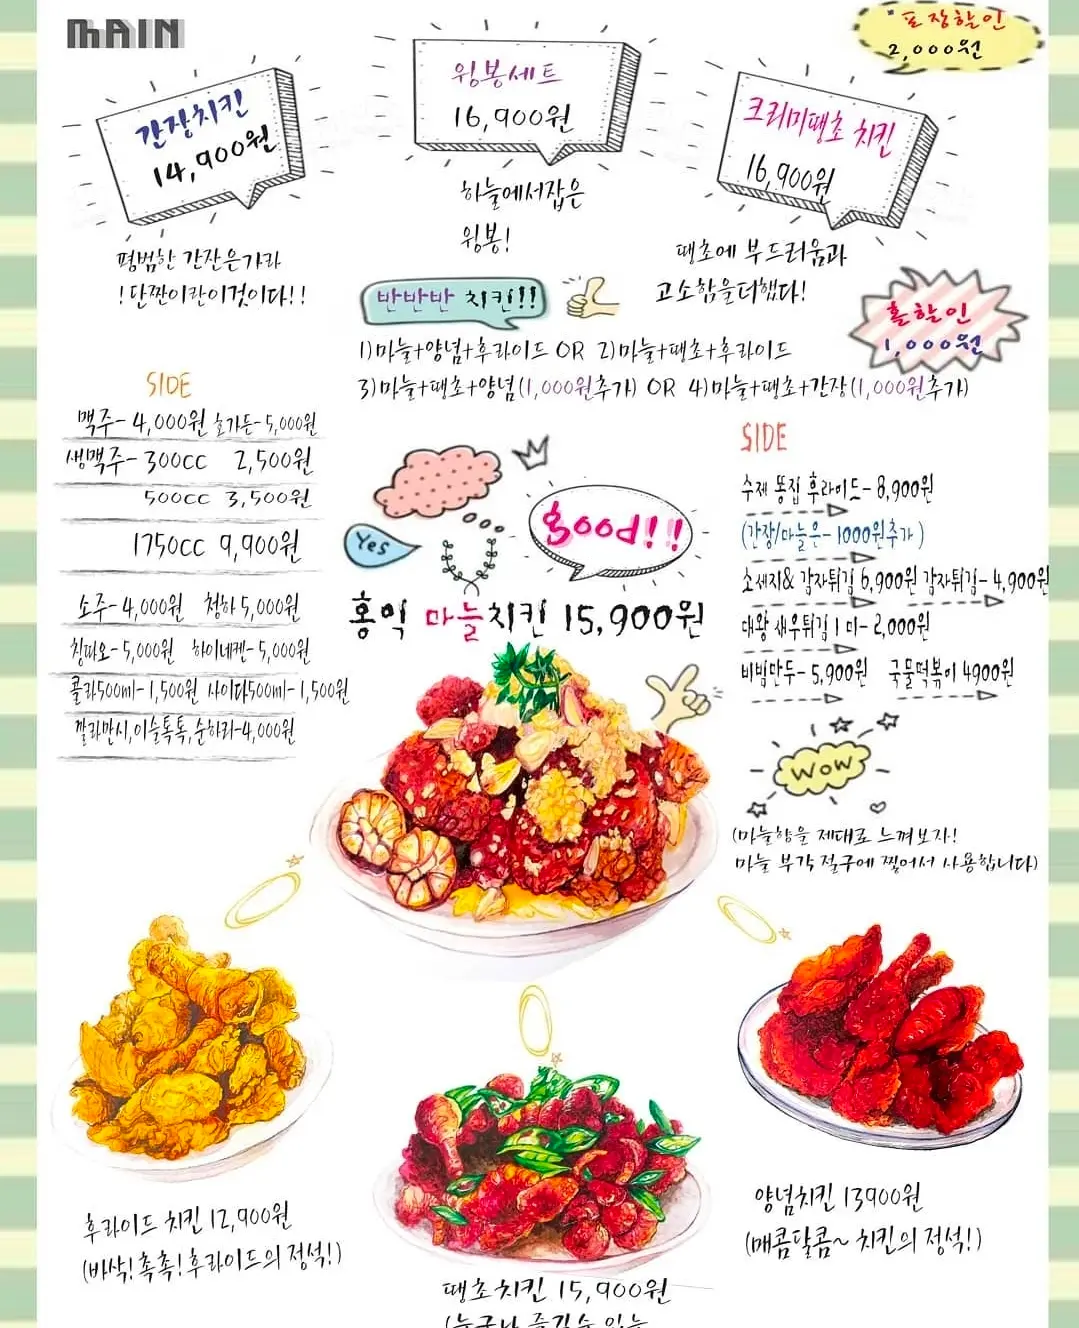 MAIN
포장할인
2,000원
간장치킨
14,900원
평범한 간잔은가라
!단짠이란이것이다!!
윙봉세트
16,900원
하늘에서잡은
윙봉!
크리미땡초 치킨
16,900원
땡초에 부드러움과
고소함을더했다!
반반반 치킨!!
홀할인
1,000원
1)마늘+양념+후라이드 OR 2)마늘+땡초+후라이드
3)마늘+땡초+양념(1,000원추가) OR 4)마늘+땡초+간장(1,000원추가)
SIDE
맥주-4,000원 호가든-5,000원
생맥주-300cc 2,500원
500cc 3,500원
1750cc 9,900원
소주-4,000원 청하 5,000원
칭따오-5,000원 하이네켄-5,000원
콜라500ml-1,500원 사이다500ml-1,500원
깔라만시,이슬톡톡,순하리-4,000원
Yes
good!!
홍익 마늘치킨 15,900원
SIDE
수제 똥집 후라이드-8,900원
(간장/마늘은-1000원추가)
소세지& 감자튀김 6,900원 감자튀김-4,900원
대왕 새우튀김 1미-2,000원
비빔만두-5,900원 국물떡볶이 4900원
WOW
(마늘향을 제대로 느껴보자!
마늘 부각 절구에 찧어서 사용합니다)
후라이드 치킨 12,900원
(바삭!촉촉!후라이드의 정석!)
땡초치킨 15,900원
(누구나 즐길수 있는
양념치킨 13900원
(매콤달콤~ 치킨의 정석!)